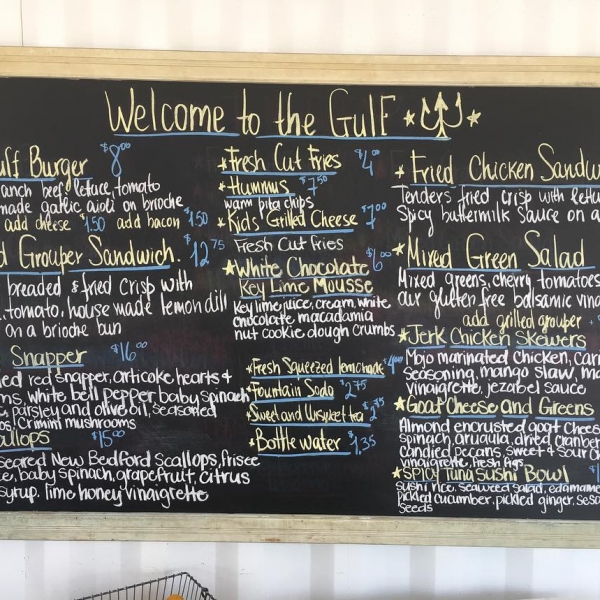 Welcome to the Gulf
Burger $8.00
beef, lettuce, tomato
made garlic aioli on brioche
add cheese $1.50 add bacon $1.50
Grouper Sandwich. $12.75
breaded & fried crisp with
tomato, house made lemon dill
on a brioche bun
Snapper $16.00
red snapper, articoke hearts &
white bell pepper baby spinach
parsley and olive oil, seasoned
Crimini mushrooms
$15.00
Seared New Bedford Scallops, frisee
baby spinach, grapefruit, citrus
syrup. lime honey vinaigrette
Fresh Cut Fries $4.00
Hummus $7.50
warm pita chips
Kids Grilled Cheese $7.00
Fresh Cut fries
White Chocolate $6.00
Key Lime Mousse
Key lime juice, cream, white
chocolate macadamia
nut cookie dough crumbs
Fresh Squeezed lemonade
Fountain Soda $2.75
Sweet and Unsweet tea
Bottle water $1.35
Fried Chicken
Tenders fried crisp with
Spicy buttermilk sauce on a
Mixed Green Salad
Mixed greens, cherry tomatoes
our gluten free balsamic
add grilled grouper
Jerk Chicken Skewers
Mojo marinated chicken,
seasoning, mango slaw,
vinaigrette, jezabel sauce
Goat Cheese and Greens
Almond encrusted goat
spinach, arugula, dried
candied pecans, sweet & sour
vinaigrette, fresh figs
Spicy Tuna Sushi Bowl
sushi rice, seaweed salad,
pickled cucumber, pickled ginger,
seeds